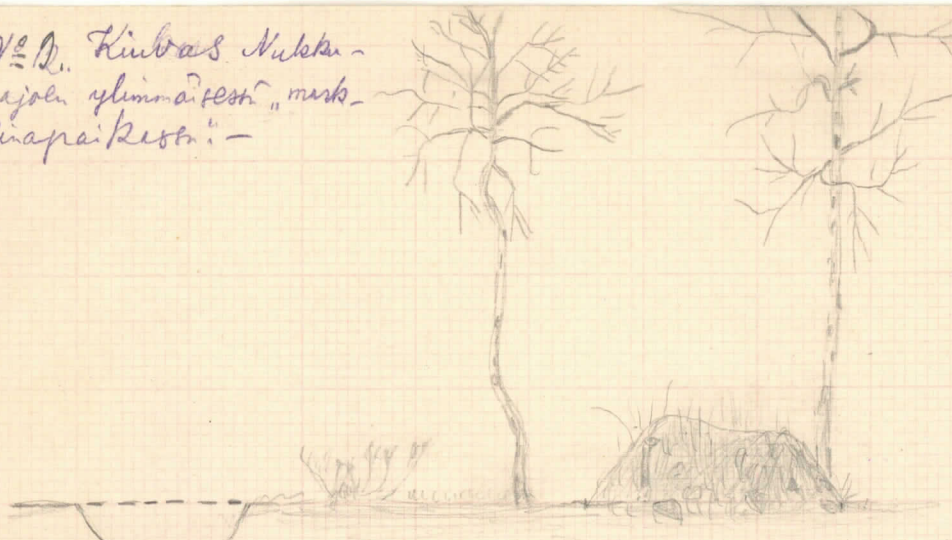 Nº Kiuvas Nukku-
ajoen ylimmäisessä „mark-
inapaikassa". —